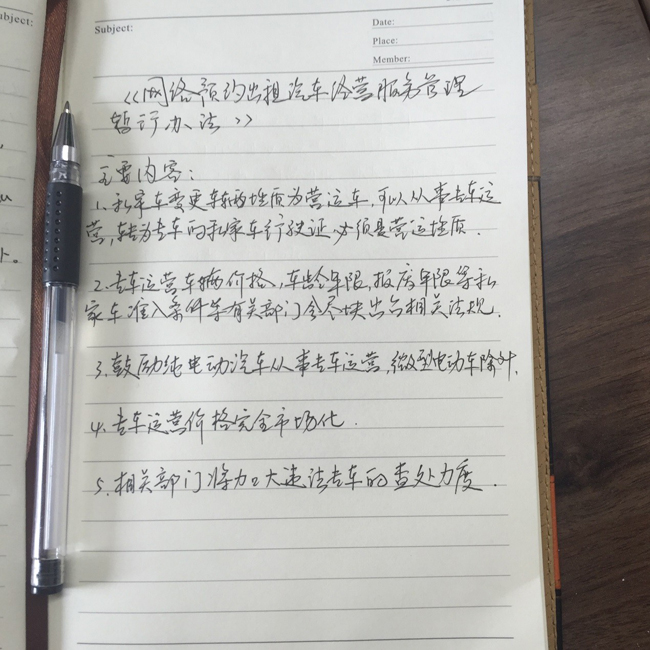 ubject:
Subject:
Date:
Place:
Member:
《网络预约出租汽车经营服务管理
暂行办法》
主要内容:
1、私家车变更车辆性质为营运车,可以从事专车运
营,转为专车的私家车行驶证必须是营运性质.
2.专车运营车辆价格,车龄年限,报废年限等私
家车准入条件等有关部门会尽快出台相关法规.
3、鼓励纯电动汽车从事专车运营,微型电动车除外.
4.专车运营价格完全市场化.
5.相关部门将加大违法专车的查处力度.